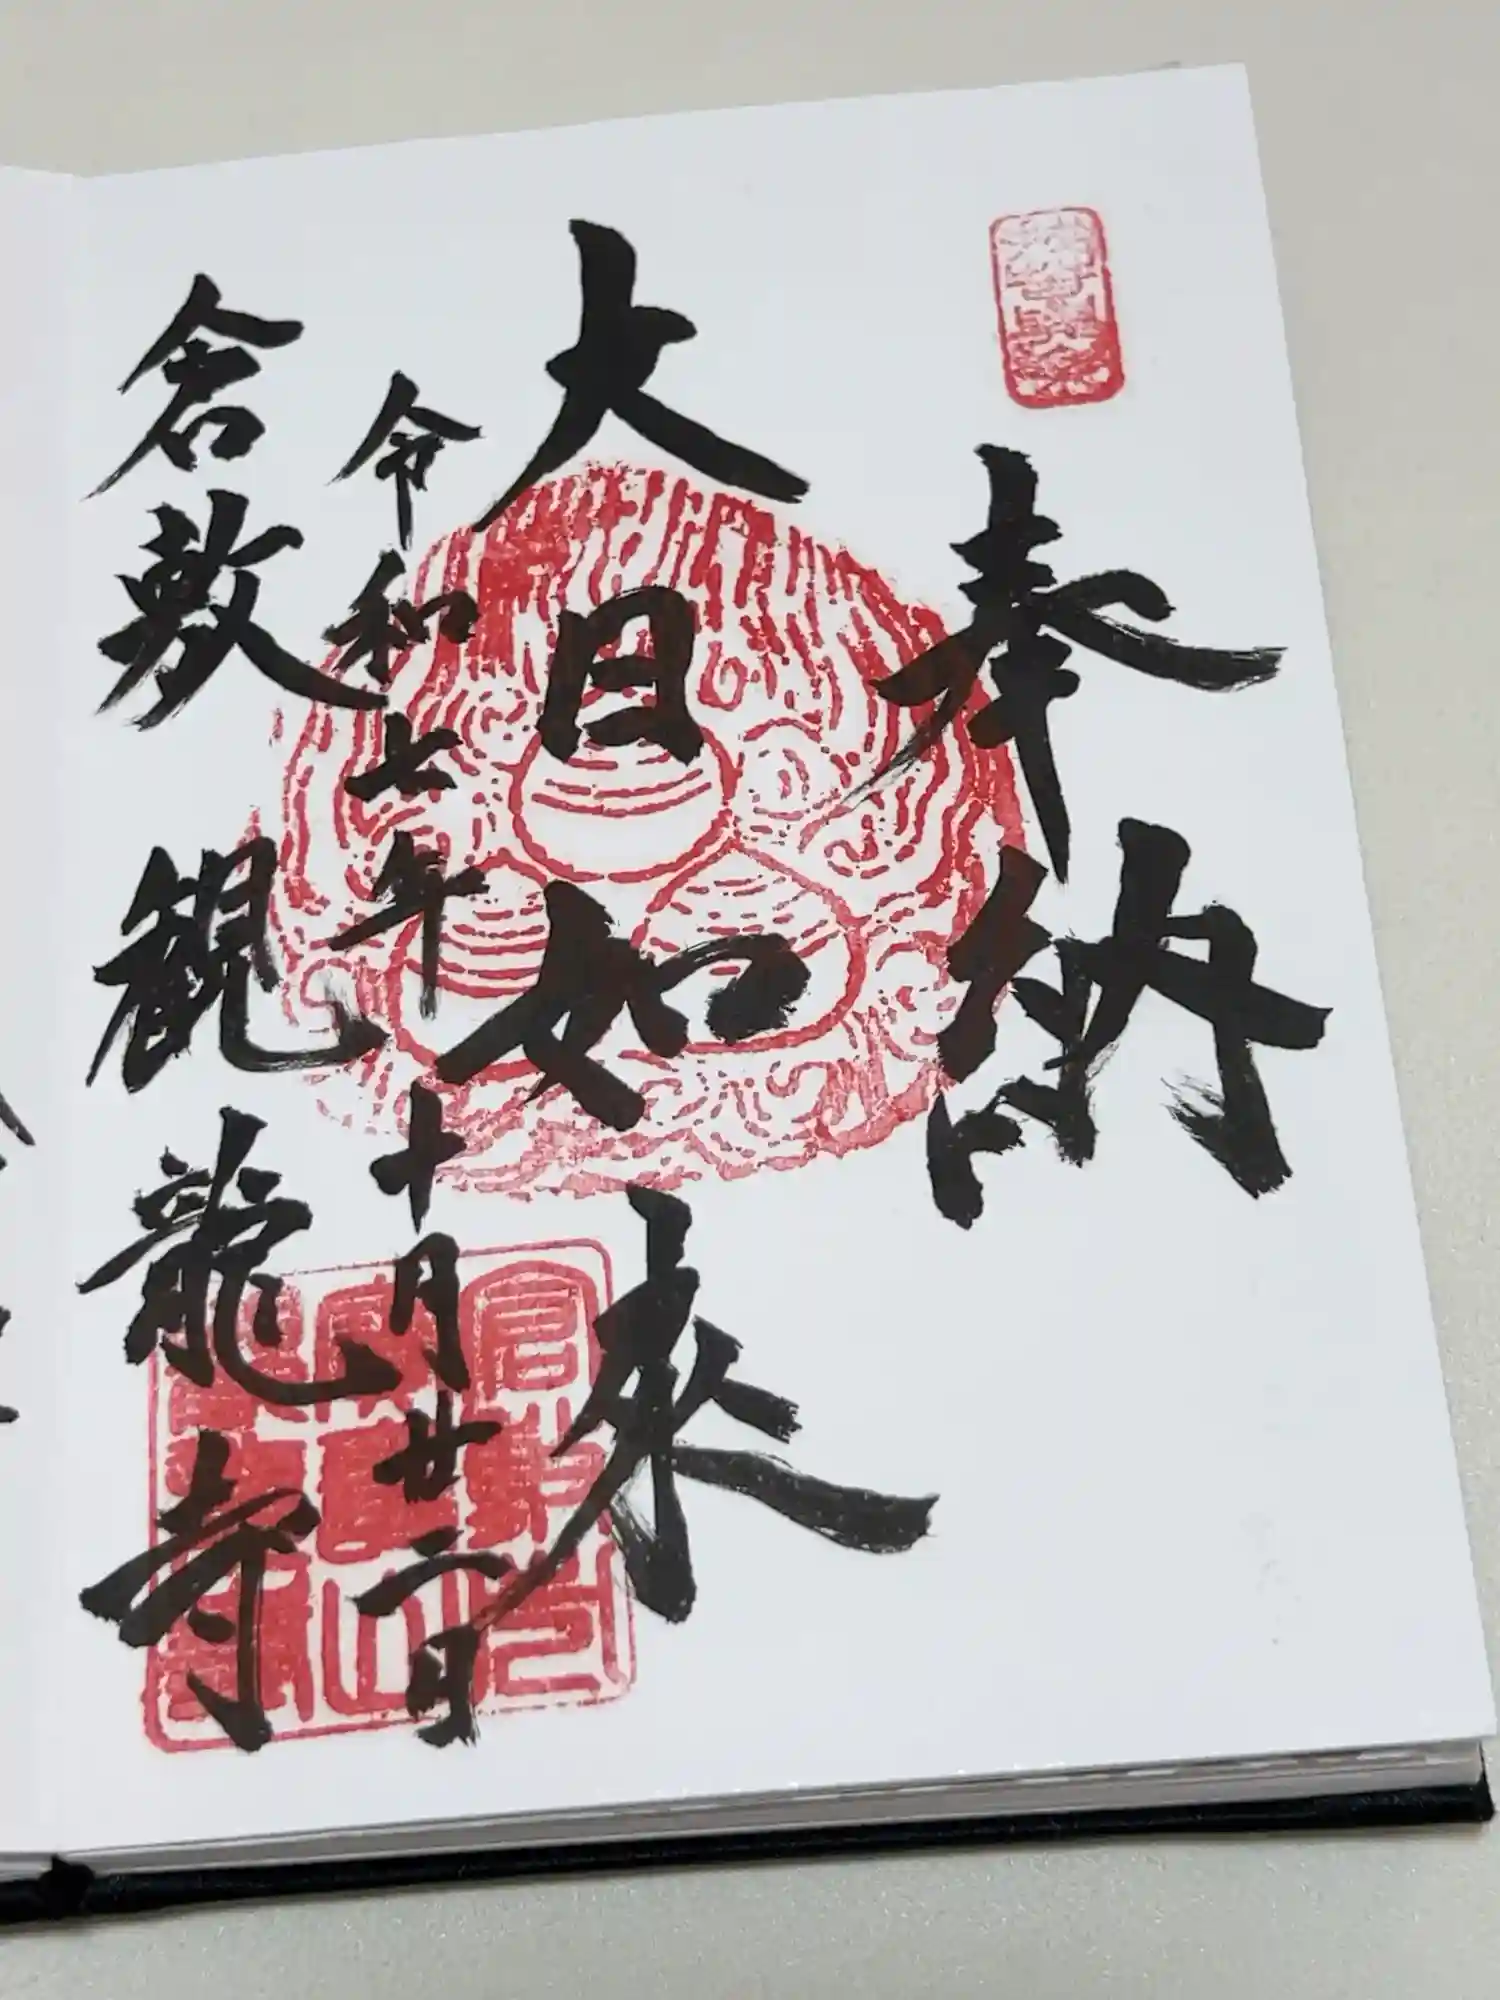 奉納
大日如来
令和七年十月廿二日
倉敷 観龍寺